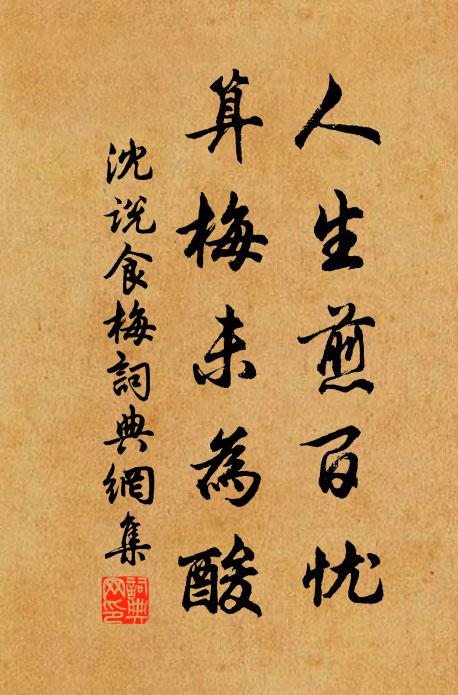 人生煎百忧
算梅未為酸
沈说食梅詞典網集
詞典网印